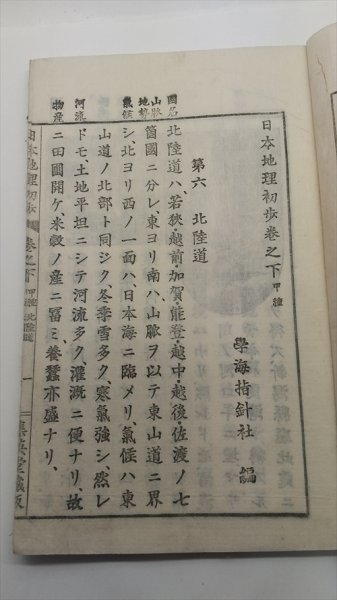 日本地理初歩卷之下 甲種
學海指針社 編
第六 北陸道
國名
北陸道ハ、若狹・越前・加賀・能登・越中・越後・佐渡ノ七
山脈
地勢
箇國ニ分レ、東ヨリ南ハ、山脈ヲ以テ東山道ニ界
氣候
シ、北ヨリ西ノ一面ハ、日本海ニ臨メリ、氣候ハ東
山道ノ北部ト同ジク、冬季雪多ク、寒氣強シ、然レ
河流
ドモ、土地平坦ニシテ河流多ク、灌漑ニ便ナリ、故
物産
ニ田圃開ケ、米穀ノ産ニ冨ミ、養蠶亦盛ナリ、
日本地理初歩 卷之下 甲種 北陸道 一